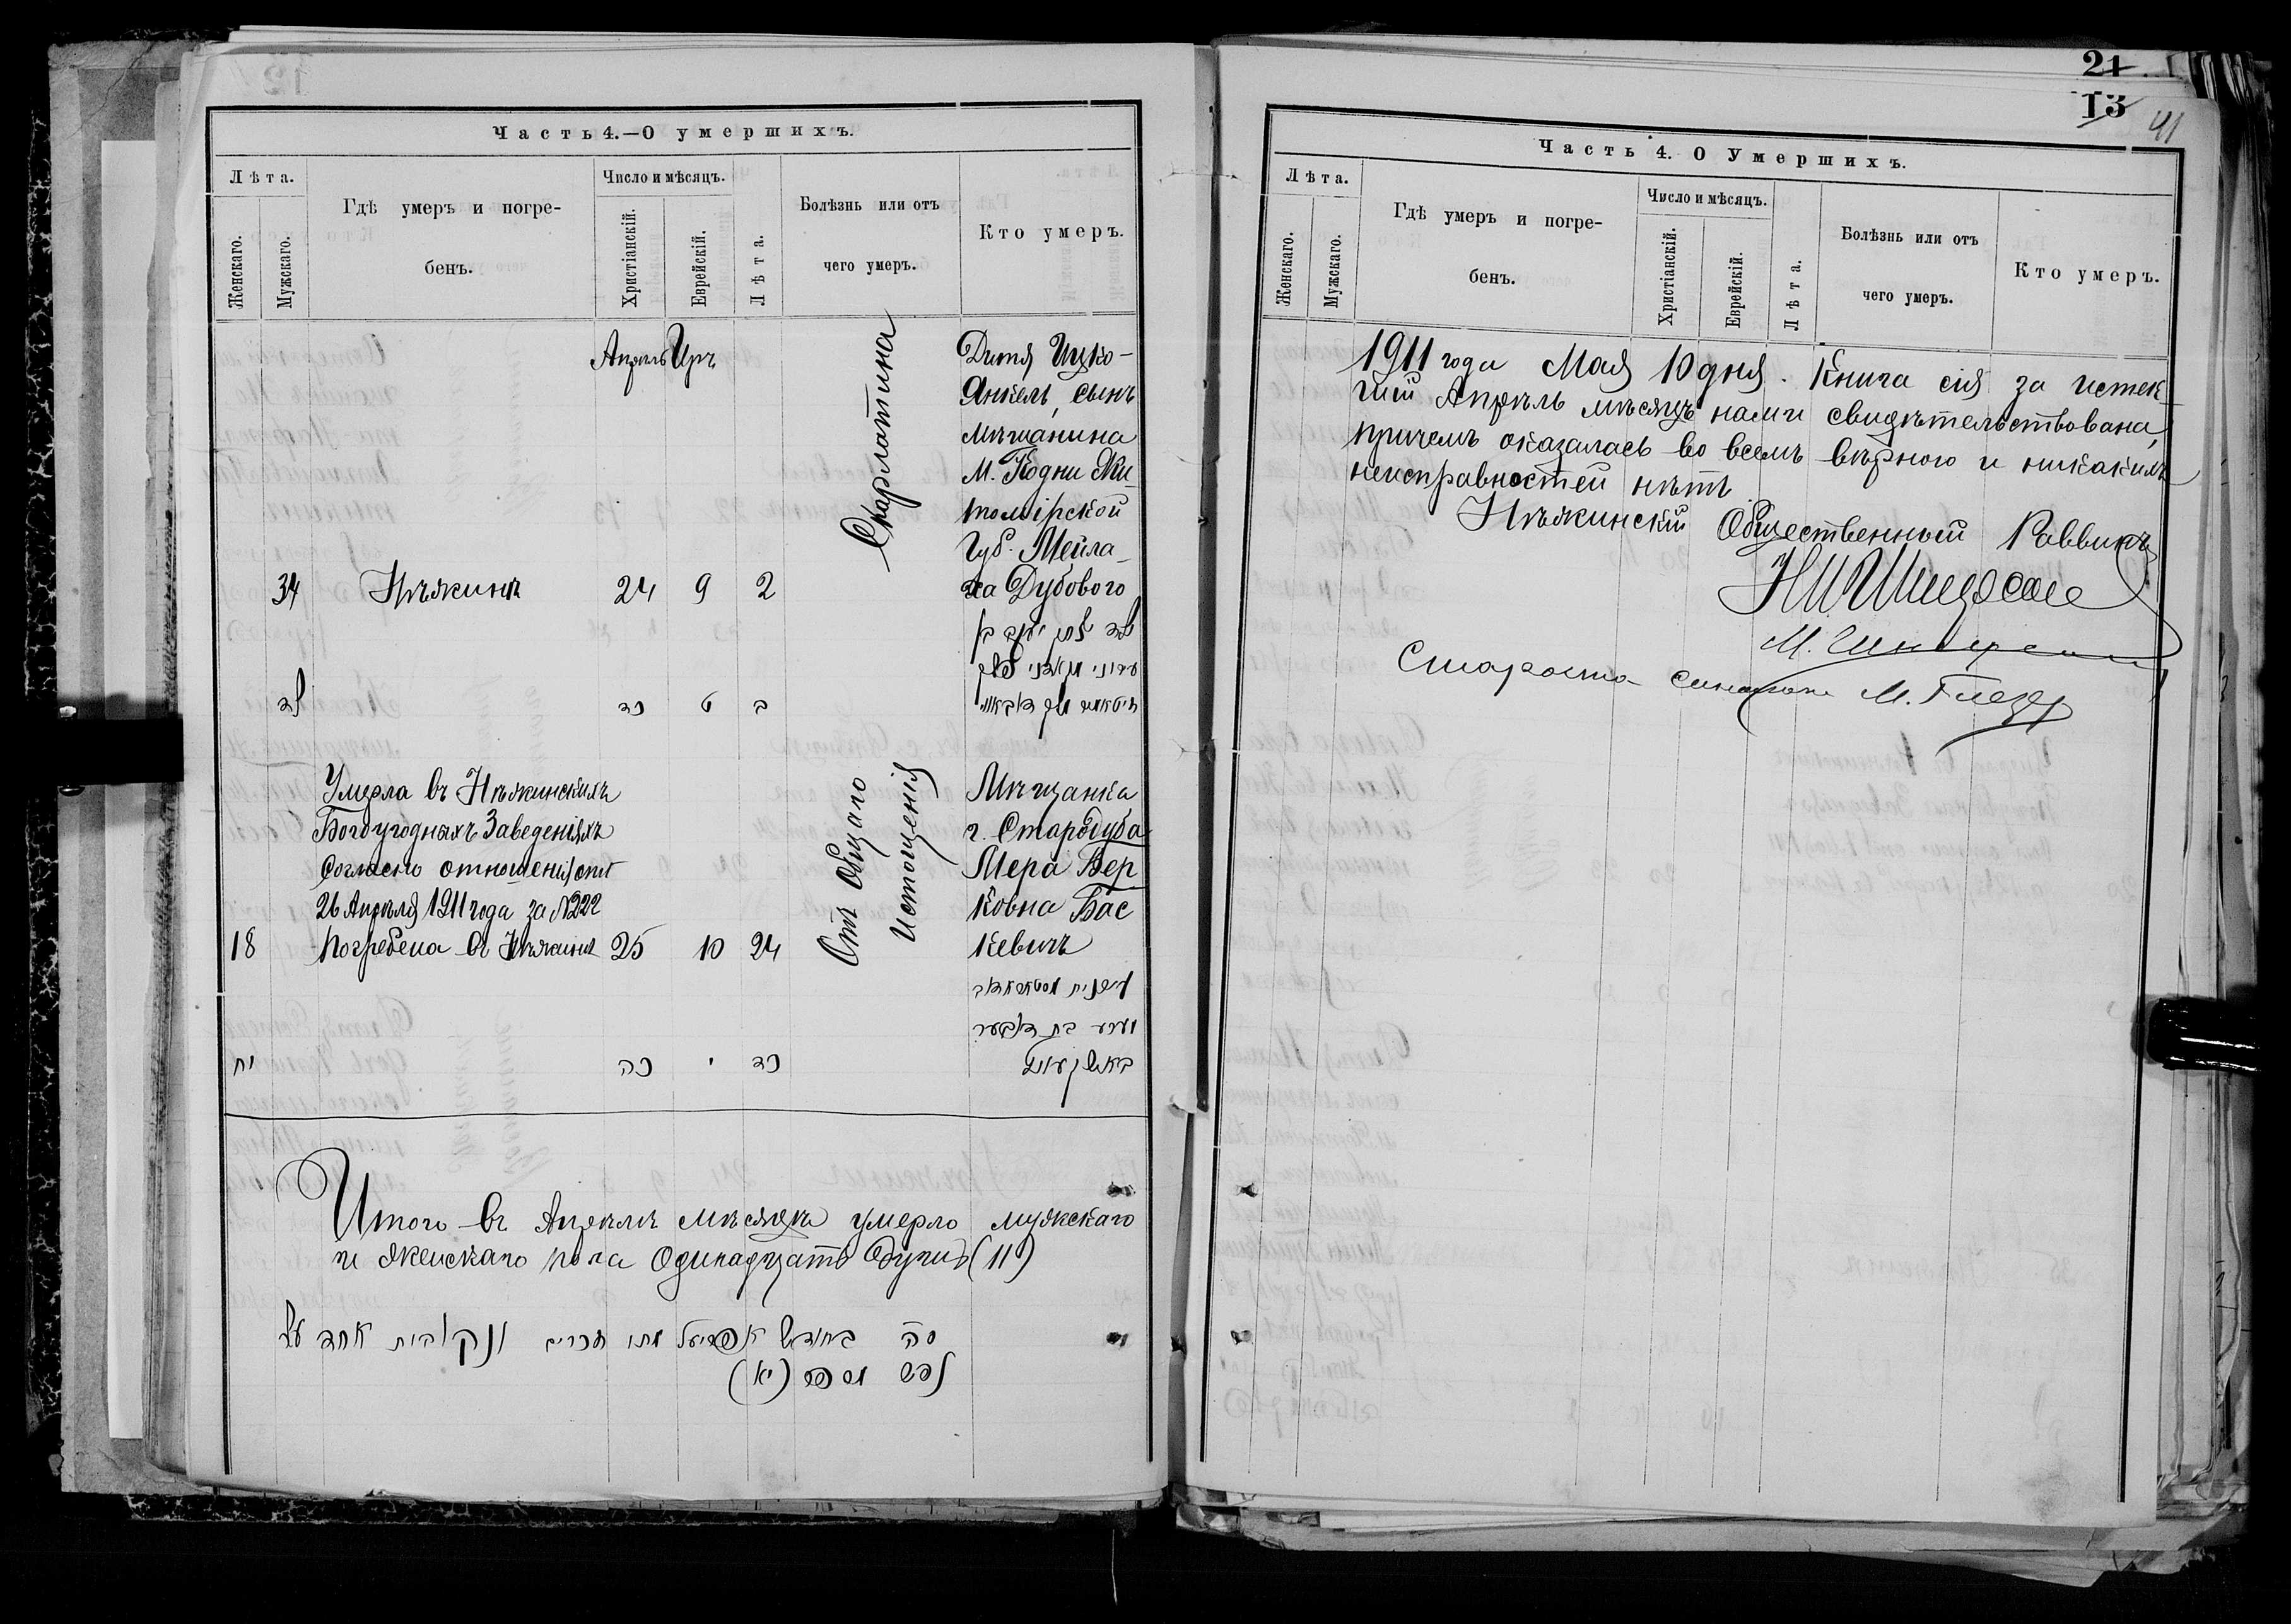 Часть 4.—О умершихъ.
Лѣта.
Женскаго.
Мужскаго.
Гдѣ умеръ и погре-
бенъ.
Число и мѣсяцъ.
Христіанскій.
Еврейскій.
Лѣта.
Болѣзнь или отъ
чего умеръ.
Кто умеръ.
Апрѣль Иръ
Скарлатина
Дитя Ицко-
Янкель, сынъ
мѣщанина
м. Кодни Жи-
томірской
Губ. Мейла-
34 Нѣжинѣ 24 9 2 ха Дубового
לד כד ט ב
Умерла въ Нѣжинскихъ
Богоугодныхъ Заведеніяхъ
Согласно отношенія отъ
26 Апрѣля 1911 года за №222
18 Погребена въ Нѣжинѣ 25 10 24
Отъ Общаго
Истощенія
Мѣщанка
г. Стародуба
Мера Бер
ковна Бас
кевичъ
יח כה י כד
Итого въ Апрѣлѣ мѣсяцѣ умерло мужскаго
и женскаго пола Одинадцать Душъ (11)
סה בחודש אפריעל מתו זכרים ונקובות אחד עשר
נפש מספר (יא)
21
13
41
Часть 4. О Умершихъ.
Лѣта.
Женскаго.
Мужскаго.
Гдѣ умеръ и погре-
бенъ.
Число и мѣсяцъ.
Христіанскій.
Еврейскій.
Лѣта.
Болѣзнь или отъ
чего умеръ.
Кто умеръ.
1911 года Мая 10 дня. Книга сія за истек-
шій Апрѣль мѣсяцъ нами свидѣтельствована,
причемъ оказалась во всемъ вѣрною и никакихъ
неисправностей нѣтъ
Нѣжинскій Общественный Раввинъ
Староста синагоги М. Глезер